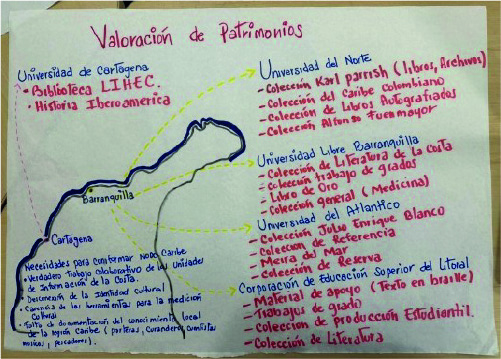 Valoración de Patrimonios
Universidad de Cartagena
• Biblioteca LIHEC.
• Historia Iberoamerica
Universidad del Norte
• Colección Karl Parrish (libros, Archivos)
• Colección del Caribe Colombiano
• Colección de Libros Autografiados
• Colección Alfonso Fuenmayor
Universidad Libre Barranquilla
• Colección de Literatura de la Costa
• Colección trabajo de grados
• Libro de Oro
• Colección general (Medicina)
Universidad del Atlantico
• Colección Julio Enrique Blanco
• Colección de Referencia
• Meira del Mar
• Colección de Reserva
Corporación de Educación Superior del Litoral
• Material de apoyo (Texto en braille)
• Trabajos de grado
• Colección de producción Estudiantil.
• Colección de Literatura
Barranquilla
Cartagena
Necesidades para conformar NODO Caribe
• Verdadero trabajo colaborativo de las Unidades
de Información de la Costa.
• Desconexión de la Identidad Cultural
• Carencia de las herramientas para la medición
Cultural
• Falta de documentación del conocimiento local
de la región Caribe (parteras, Curanderos,
musicos, pescadores).